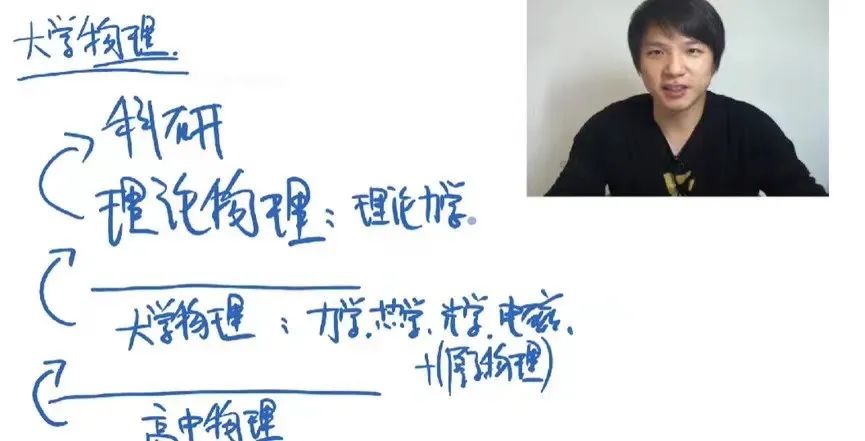 大学物理.
科研
理论物理：理论力学。
大学物理：力学、热学、光学、电磁、
+(原子物理)
高中物理